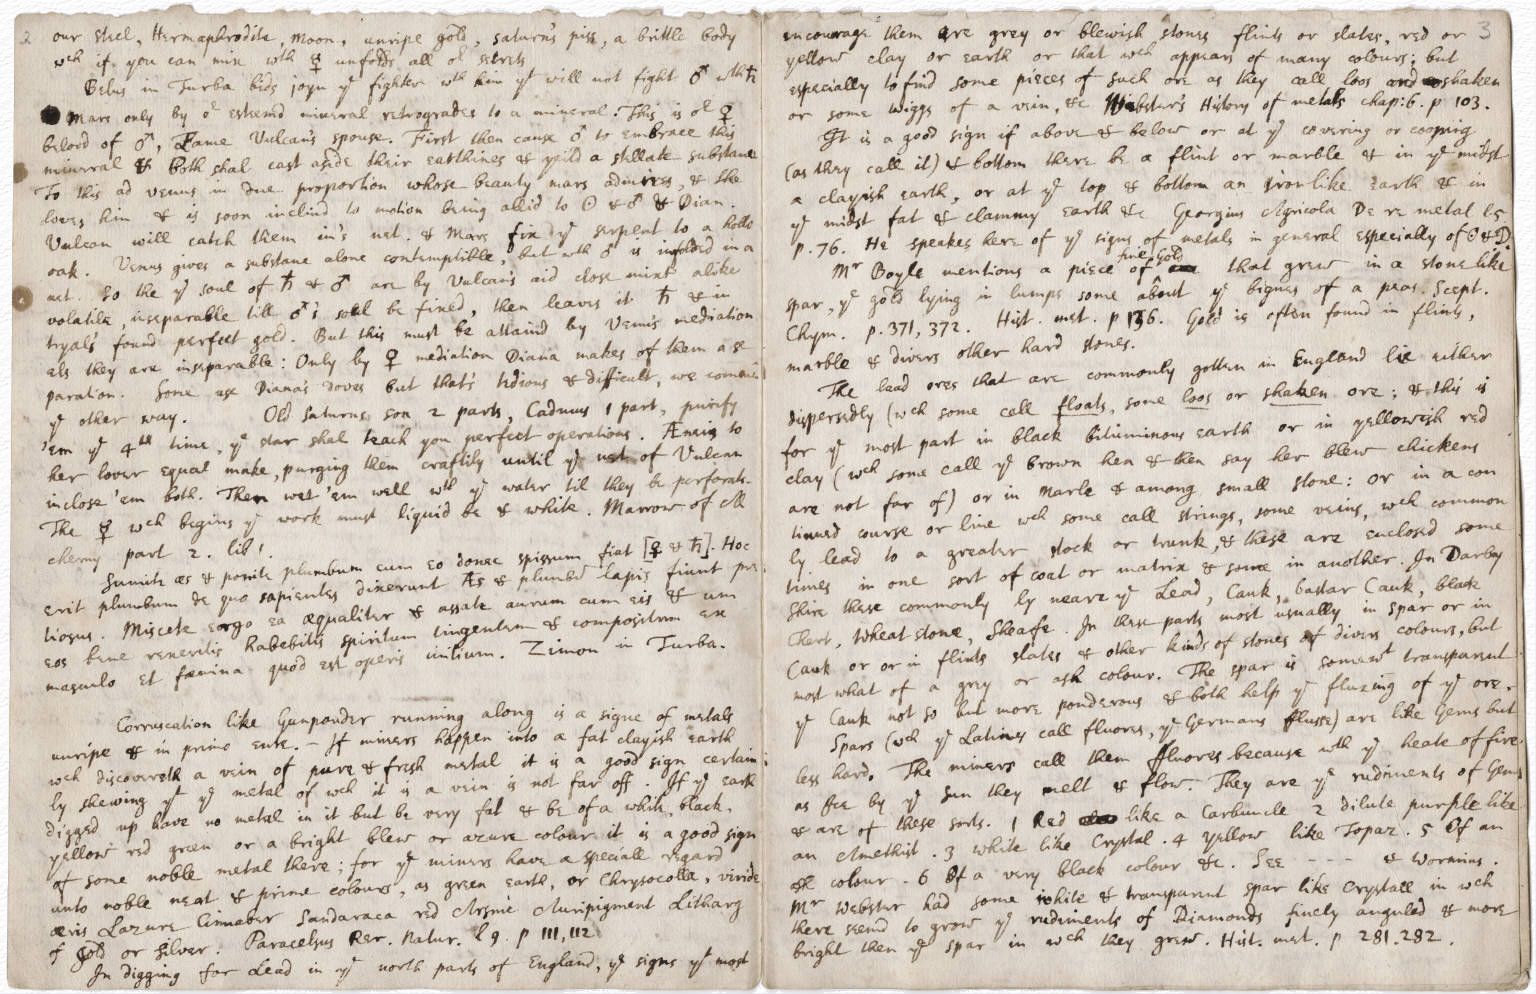 2
our steel, Hermaphrodite, Moon, unripe gold, saturn's piss, a brittle body
wch if you can mix wth ☿ unfolds all oe secrets
Belus in Turba bids joyn ye fighter wth him yt will not fight ♂ wth ♄
Mars only by oe esteemd mineral retrogrades to a mineral. This is oe ♀
belovd of ♂, Fame Vulcan's spouse. First then cause ♂ to embrace this
mineral & both shal cast aside their earthines & yeild a stellate substance
To this ad venus in due proportion whose beauty mars admires, & she
loves him & is soon inclind to motion being allid to ☉ & ♂ & Dian.
Vulcan will catch them in's net. & Mars fix ye serpent to a hollo
oak. Venus gives a substane alone contemptible, but wth ♂ is infolded in a
net. So the ye soul of ♄ & ♂ are by Vulcan's aid close mixt alike
volatile, inseparable till ♂'s soul be fixed, then leaves it ♄ & in
tryals found perfect gold. But this must be attaind by Venus mediation
els they are inseparable: Only by ♀ mediation Diana makes of them a se
paration. Some use Diana's Doves but that's tedious & difficult, we commend
ye other way. Old Saturns son 2 parts, Cadmus 1 part, purify
'em ye 4th time, ye star shal teach you perfect operations. Æneis to
her lover equal make, purging them craftily until ye net of Vulcan
inclose 'em both. Then wet 'em well wth ye water til they be perforate.
The ☿ wch begins ye work must liquid be & white. Marrow of Al
chemy part 2. lib 1.
Sumite æs & ponite plumbum cum eo donec spissum fiat [♀ & ♄]. Hoc
erit plumbum de quo sapientes dixerunt Æs & plumbū lapis fiunt pre
tiosus. Miscete ergo ea æqualiter & assate aurum cum eis & um
eos bene rexeritis habebitis spiritum tingentem & compositum ex
masculo et fæmina quod est operis initium. Zimon in Turba.
Corruscation like Gunpouder running along is a signe of metals
unripe & in primo ente. – If miners happen into a fat clayish earth
wch discovereth a vein of pure & fresh metal it is a good sign certain
ly shewing yt ye metal of wch it is a vein is not far off. If ye earth
digged up have no metal in it but be very fat & be of a white, black,
yellow red green or a bright blew or azure colour it is a good sign
of some noble metal there; for ye miners have a speciall regard
unto noble neat & prime colours, as green earth, or Chrysocolla, viride
æris Lazure Cinnaber Sandaraca red Arsnic Auripigment Litharg
of gold or silver. Paracelsus Rer. Natur. l 9. p 111, 112
In digging for Lead in ye north parts of England, ye signs yt most
3
encourage them are grey or blewish stones flints or slates, red or
yellow clay or earth or that wch appears of many colours; but
especially to find some pieces of such ore as they call loos and shaken
or some wiggs of a vein, &c Webster's History of metals chap: 6. p 103.
It is a good sign if above & below or at ye covering or cooping
(as they call it) & bottom there be a flint or marble & in ye midst
a clayish earth, or at ye top & bottom an Iron like earth & in
ye midst fat & clammy earth &c Georgius Agricola De re metal l 5
p. 76. He speakes here of ye signs of metals in general especially of ☉ & ☽.
Mr Boyle mentions a piece of fine gold that grew in a stone like
spar, ye gold lying in lumps some about ye bignes of a peas. Scept.
Chym. p. 371, 372. Hist. met. p 136. Gold is often found in flints,
marble & divers other hard stones.
The lead ores that are commonly gotten in England lie either
dispersedly (wch some call floats, some loos or shaken ore; & this is
for ye most part in black bituminous earth or in yellowish red
clay (wch some call ye brown hen & then say her blew chickens
are not far of) or in Marle & among small stone: or in a con
tinued course or line wch some call strings, some veins, wch common
ly lead to a greater stock or trunk, & these are enclosed some
times in one sort of coat or matrix & some in another. In Darby
Shire these commonly ly neare ye Lead, Cauk, bastar Cauk, black
Chert, Wheat stone, Sheafe. In these parts most usually in spar or in
Cauk or or in flints slates & other kinds of stones of divers colours, but
most what of a grey or ash colour. The spar is somewt transparent
ye Cauk not so but more ponderous & both help ye fluxing of ye ore.
Spars (wch ye Latines call fluores, ye Germans flusse) are like Gems but
less hard. The miners call them fluores because wth ye heate of fire
as Ice by ye sun they melt & flow. They are ye rudiments of Gems
& are of these sorts. 1 Red like a Carbuncle 2 dilute purple like
an Amethist. 3 white like Crystal. 4 yellow like Topaz. 5 Of an
ash colour. 6 Of a very black colour &c. See - - - & Wormius.
Mr Webster had some white & transparent spar like Crystall in wch
there seemd to grow ye rudiments of Diamonds finely anguled & more
bright then ye spar in wch they grew. Hist. met. p 281. 282.